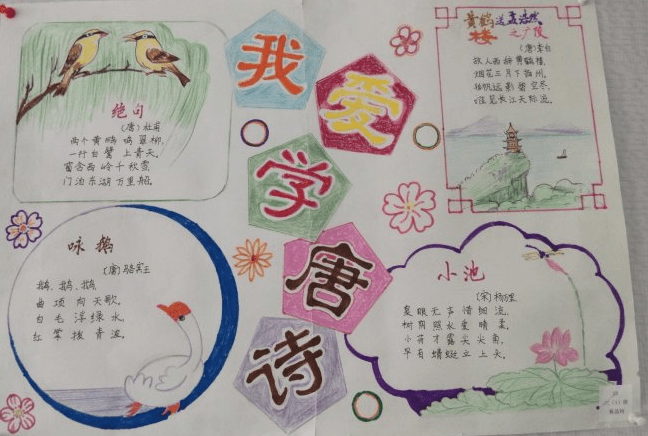 我爱学唐诗
绝句
(唐)杜甫
两个黄鹂鸣翠柳,
一行白鹭上青天。
窗含西岭千秋雪,
门泊东湖万里船。
黄鹤楼送孟浩然之广陵
(唐)李白
故人西辞黄鹤楼,
烟花三月下扬州。
孤帆远影碧空尽,
唯见长江天际流。
咏鹅
(唐)骆宾王
鹅、鹅、鹅,
曲项向天歌。
白毛浮绿水,
红掌拨青波。
小池
(宋)杨万里
泉眼无声惜细流,
树阴照水爱晴柔。
小荷才露尖尖角,
早有蜻蜓立上头。